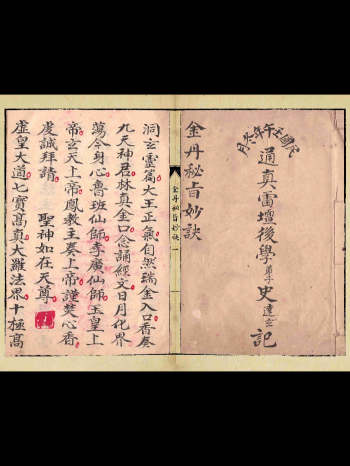 民國壬午年冬月
通真雷壇後學弟子史達玄記
金丹秘旨妙訣
金丹秘旨妙訣
洞玄靈篇大王正氣自然瑞金入口香奏
九天神君林真金口念誦經文日月化界
蕩今身心魯班仙師李廣仙師玉皇上
帝玄天上帝鳳教主奏上帝謹焚心香
虔誠拜請 聖神如在天尊
虛皇大道七寶高真大羅法界十極高